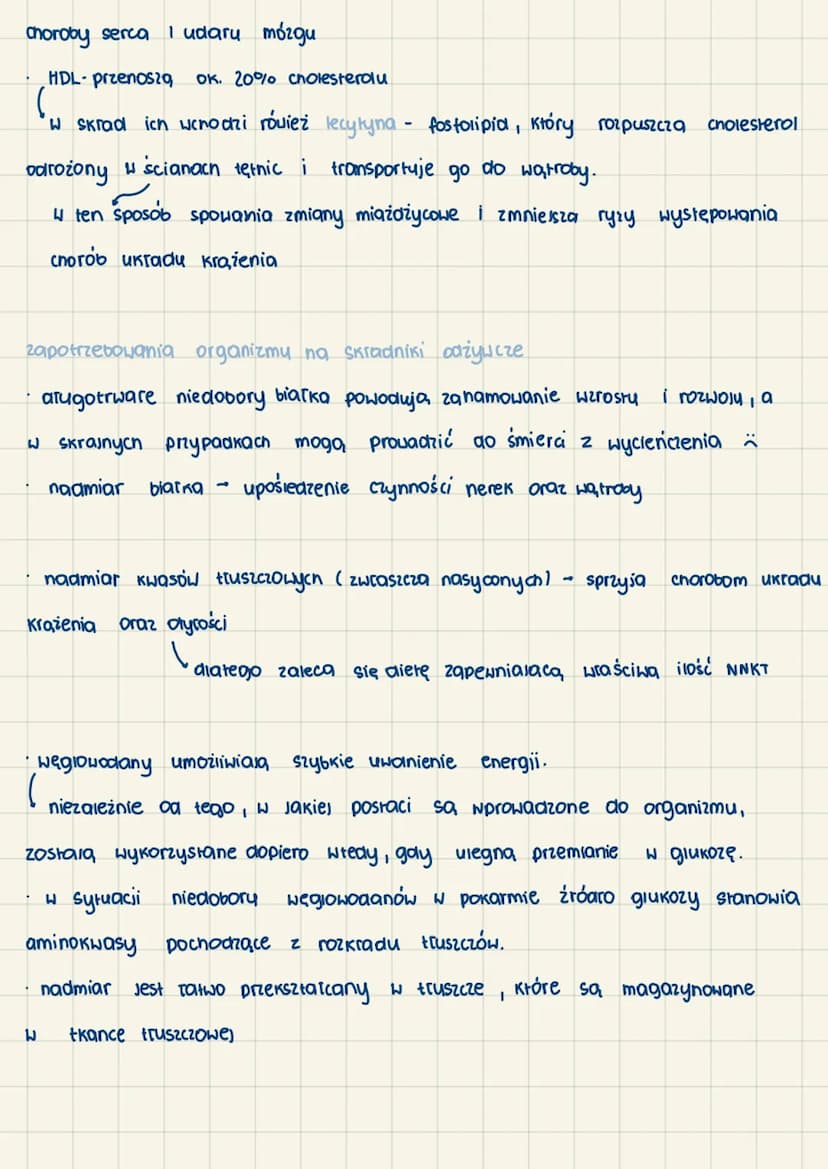 choroby serca i udaru mózgu
· HDL - przenoszą ok. 20% cholesterolu
w skład ich wchodzi róuież lecytyna - fosfolipid, który rozpuszcza cholesterol
odłożony w ścianach tętnic i transportuje go do wątroby.
w ten sposób spowania zmiany miażdżycowe i zmniejsza ryzy występowania
chorób układu krążenia
zapotrzebowania organizmu na składniki odżywcze
· długotrwałe niedobory białka powodują zahamowanie wzrostu i rozwoju, a
w skrajnych przypadkach mogą prowadzić do śmierci z wycieńczenia :(
· nadmiar białka - upośledzenie czynności nerek oraz wątroby
· nadmiar kwasów tłuszczowych (zwłaszcza nasyconych) - sprzyja chorobom układu
krążenia oraz otyłości
dlatego zaleca się dietę zapewniającą właściwą ilość NNKT
· węglowodany umożliwiają szybkie uwolnienie energii.
niezależnie od tego, w jakiej postaci są wprowadzone do organizmu,
zostają wykorzystane dopiero wtedy, gdy ulegną przemianie w glukozę.
· w sytuacji niedobory węglowodanów w pokarmie źródło glukozy stanowią
aminokwasy pochodzące z rozkładu tłuszczów.
· nadmiar jest łatwo przekształcany w tłuszcze, które są magazynowane
w tkance tłuszczowej